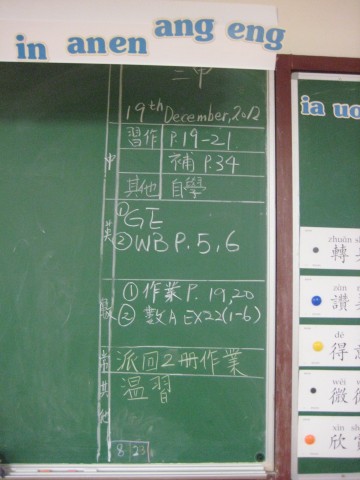 in an en ang eng
三甲
19th December, 2012
中 習作 P.19-21
補 P.34
其他 自學
英 ① GE
② WB P. 5, 6
數 ① 作業 P. 19, 20
② 數A EX22(1-6)
常 派回2冊作業
其他 溫習
8 23
ia uo
zhuǎn
轉
zàn
讚
dé
得意
wēi
微微
xīn
欣